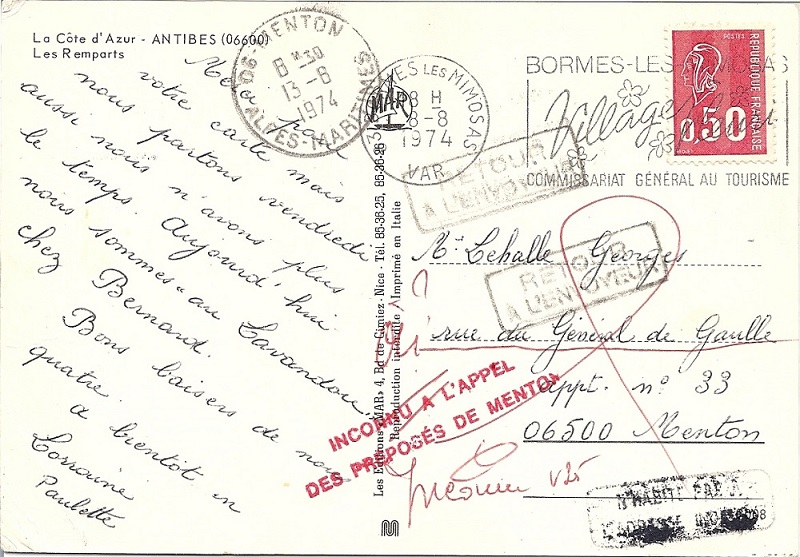 La Côte d'Azur - ANTIBES (06600)
Les Remparts
Merci pour
votre carte mais
nous partons vendredi
aussi nous n'avons plus
le temps. Aujourd'hui
nous sommes au Lavandou
chez Bernard.
Bons baisers de nous
quatre.
à bientôt en
Lorraine
Paulette
06-MENTON
8 H 30
13-8
1974
ALPES-MARITIMES
MAR
BORMES LES MIMOSAS
18 H
8-8
1974
VAR
BORMES-LES-MIMOSAS
Village
COMMISSARIAT GÉNÉRAL AU TOURISME
POSTES
RÉPUBLIQUE FRANÇAISE
0,50
RETOUR
A L'ENVOYEUR
Les Editions «MAR» 4, Bd de Cimiez-Nice - Tél. 85-36-25, 85-36-26
Reproduction interdite Imprimé en Italie
Mr Lehalle Georges
RETOUR
A L'ENVOYEUR
rue du Général de Gaulle
appt. n° 33
06500 Menton
INCONNU A L'APPEL
DES PRÉPOSÉS DE MENTON
Inconnu V25
N'HABITE PAS
L'ADRESSE INDIQUÉE